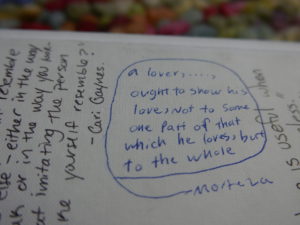 a lover.....,
ought to show his
love, not to some
one part of that
which he loves, but
to the whole
- Morteza
resemble
else - either in the way
or in the way you
imitating the person
yourself resemble?"
- Cari Gaynes.
is useful when